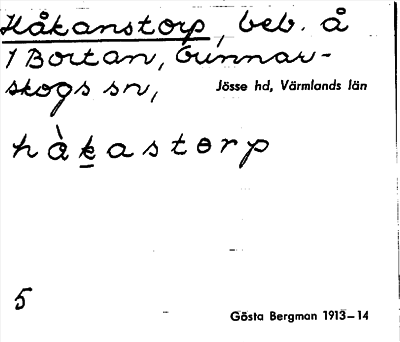 Håkanstorp, beb. å
1 Bortan, Gunnar-
skogs sn,
Jösse hd, Värmlands län
hå̀k̲astɵrp
5
Gösta Bergman 1913–14